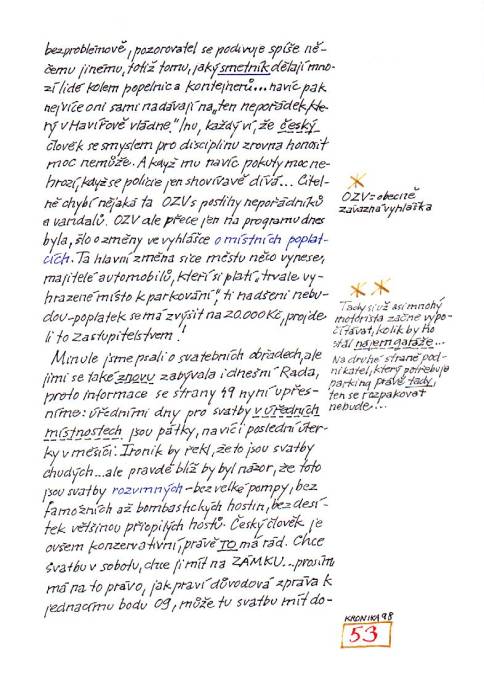 bezproblémově, pozorovatel se podivuje spíše ně-
čemu jinému, totiž tomu, jaký smetník dělají mno-
zí lidé kolem popelnic a kontejnerů... navíc pak
nejvíce oni sami nadávají na „ten nepořádek, kte-
rý v Havířově vládne." Inu, každý ví, že český
člověk se smyslem pro disciplinu zrovna honosit
moc nemůže. A když mu navíc pokuty moc ne-
hrozí, když se policie jen shovívavě dívá... Citel-
ně chybí nějaká ta OZV s postihy nepořádníků
a vandalů. OZV ale přece jen na programu dnes
byla, šlo o změny ve vyhlášce o místních poplat-
cích. Ta hlavní změna sice městu něco vynese,
majitelé automobilů, kteří si platí „trvale vy-
hrazené místo k parkování", ti nadšeni nebu-
dou – poplatek se má zvýšit na 20.000 Kč, projde-
li to zastupitelstvem!
Minule jsme psali o svatebních obřadech, ale
jimi se také znovu zabývala i dnešní Rada,
proto informace se strany 49 nyní upřes-
níme: úředními dny pro svatby v úředních
místnostech jsou pátky, navíc i poslední úter-
ky v měsíci. Ironik by řekl, že to jsou svatby
chudých... ale pravdě blíž by byl názor, že toto
jsou svatby rozumných – bez velké pompy, bez
famózních až bombastických hostin, bez desí-
tek většinou přiopilých hostů. Český člověk je
ovšem konzervativní, právě TO má rád. Chce
svatbu v sobotu, chce ji mít na ZÁMKU... prosím
má na to právo, jak praví důvodová zpráva k
jednacímu bodu 09, může tu svatbu mít do-
OZV = obecně
závazná vyhláška
Tady si už asi mnohý
motorista začne vypo-
čítávat, kolik by ho
stál nájem garáže...
Na druhé straně pod-
nikatel, který potřebuje
parking právě tady,
ten se rozpakovat
nebude...
KRONIKA 98
53